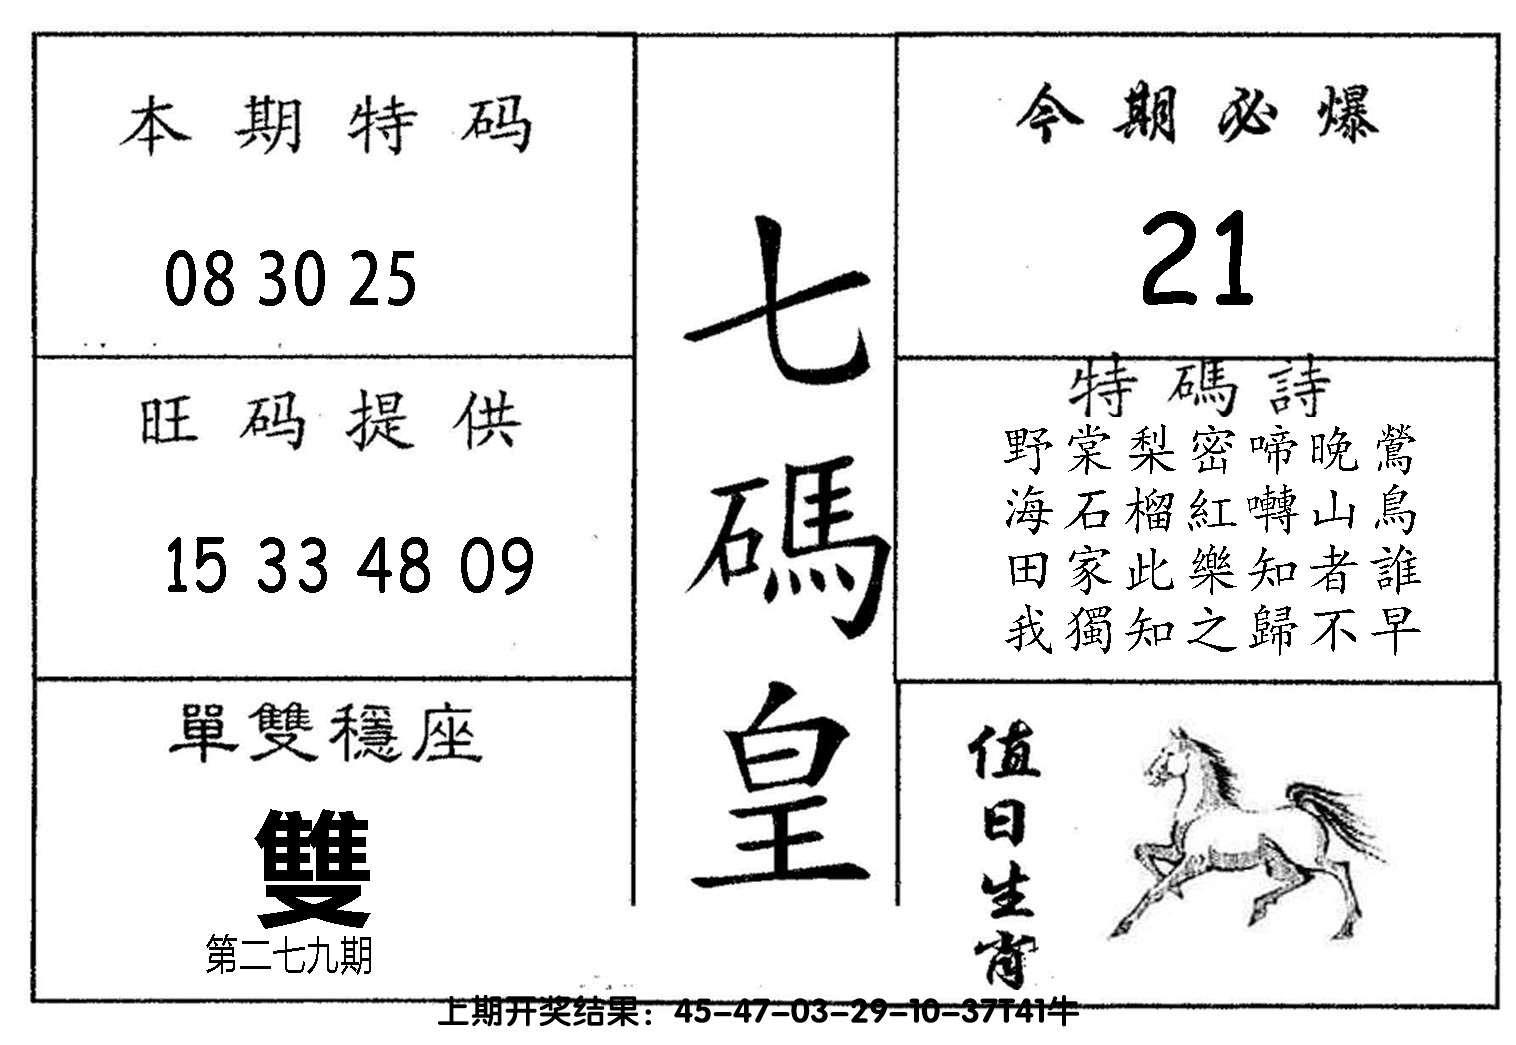 本期特码
08 30 25
旺码提供
15 33 48 09
單雙穩座
雙
第二七九期
七碼皇
今期必爆
21
特碼詩
野棠梨密啼晚鶯
海石榴紅囀山鳥
田家此樂知者誰
我獨知之歸不早
值日生肖
上期开奖结果：45-47-03-29-10-37T41牛